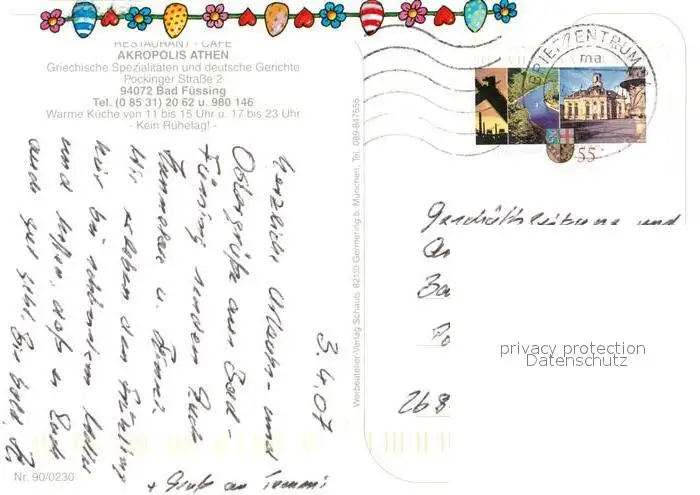 RESTAURANT - CAFÉ
AKROPOLIS ATHEN
Griechische Spezialitäten und deutsche Gerichte
Pockinger Straße 2
94072 Bad Füssing
Tel. (0 85 31) 20 62 u. 980 146
Warme Küche von 11 bis 15 Uhr u. 17 bis 23 Uhr
- Kein Ruhetag! -
BRIEFZENTRUM
ma
55
3.4.07
Herzliche Urlaubs- und
Ostergrüße aus Bad-
Füssing senden Euch
Hannelore u.
Wir erleben den Frühling
hier bei schönstem Wetter
und hoffen, daß es Euch
auch gut geht. Bis bald,
+ Gruß an Tommi
Geschäftsleitung und
268
privacy protection
Datenschutz
Werbeatelier-Verlag-Schaub, 82110 Germering b. München, Tel. 089-847655
Nr. 90/0230